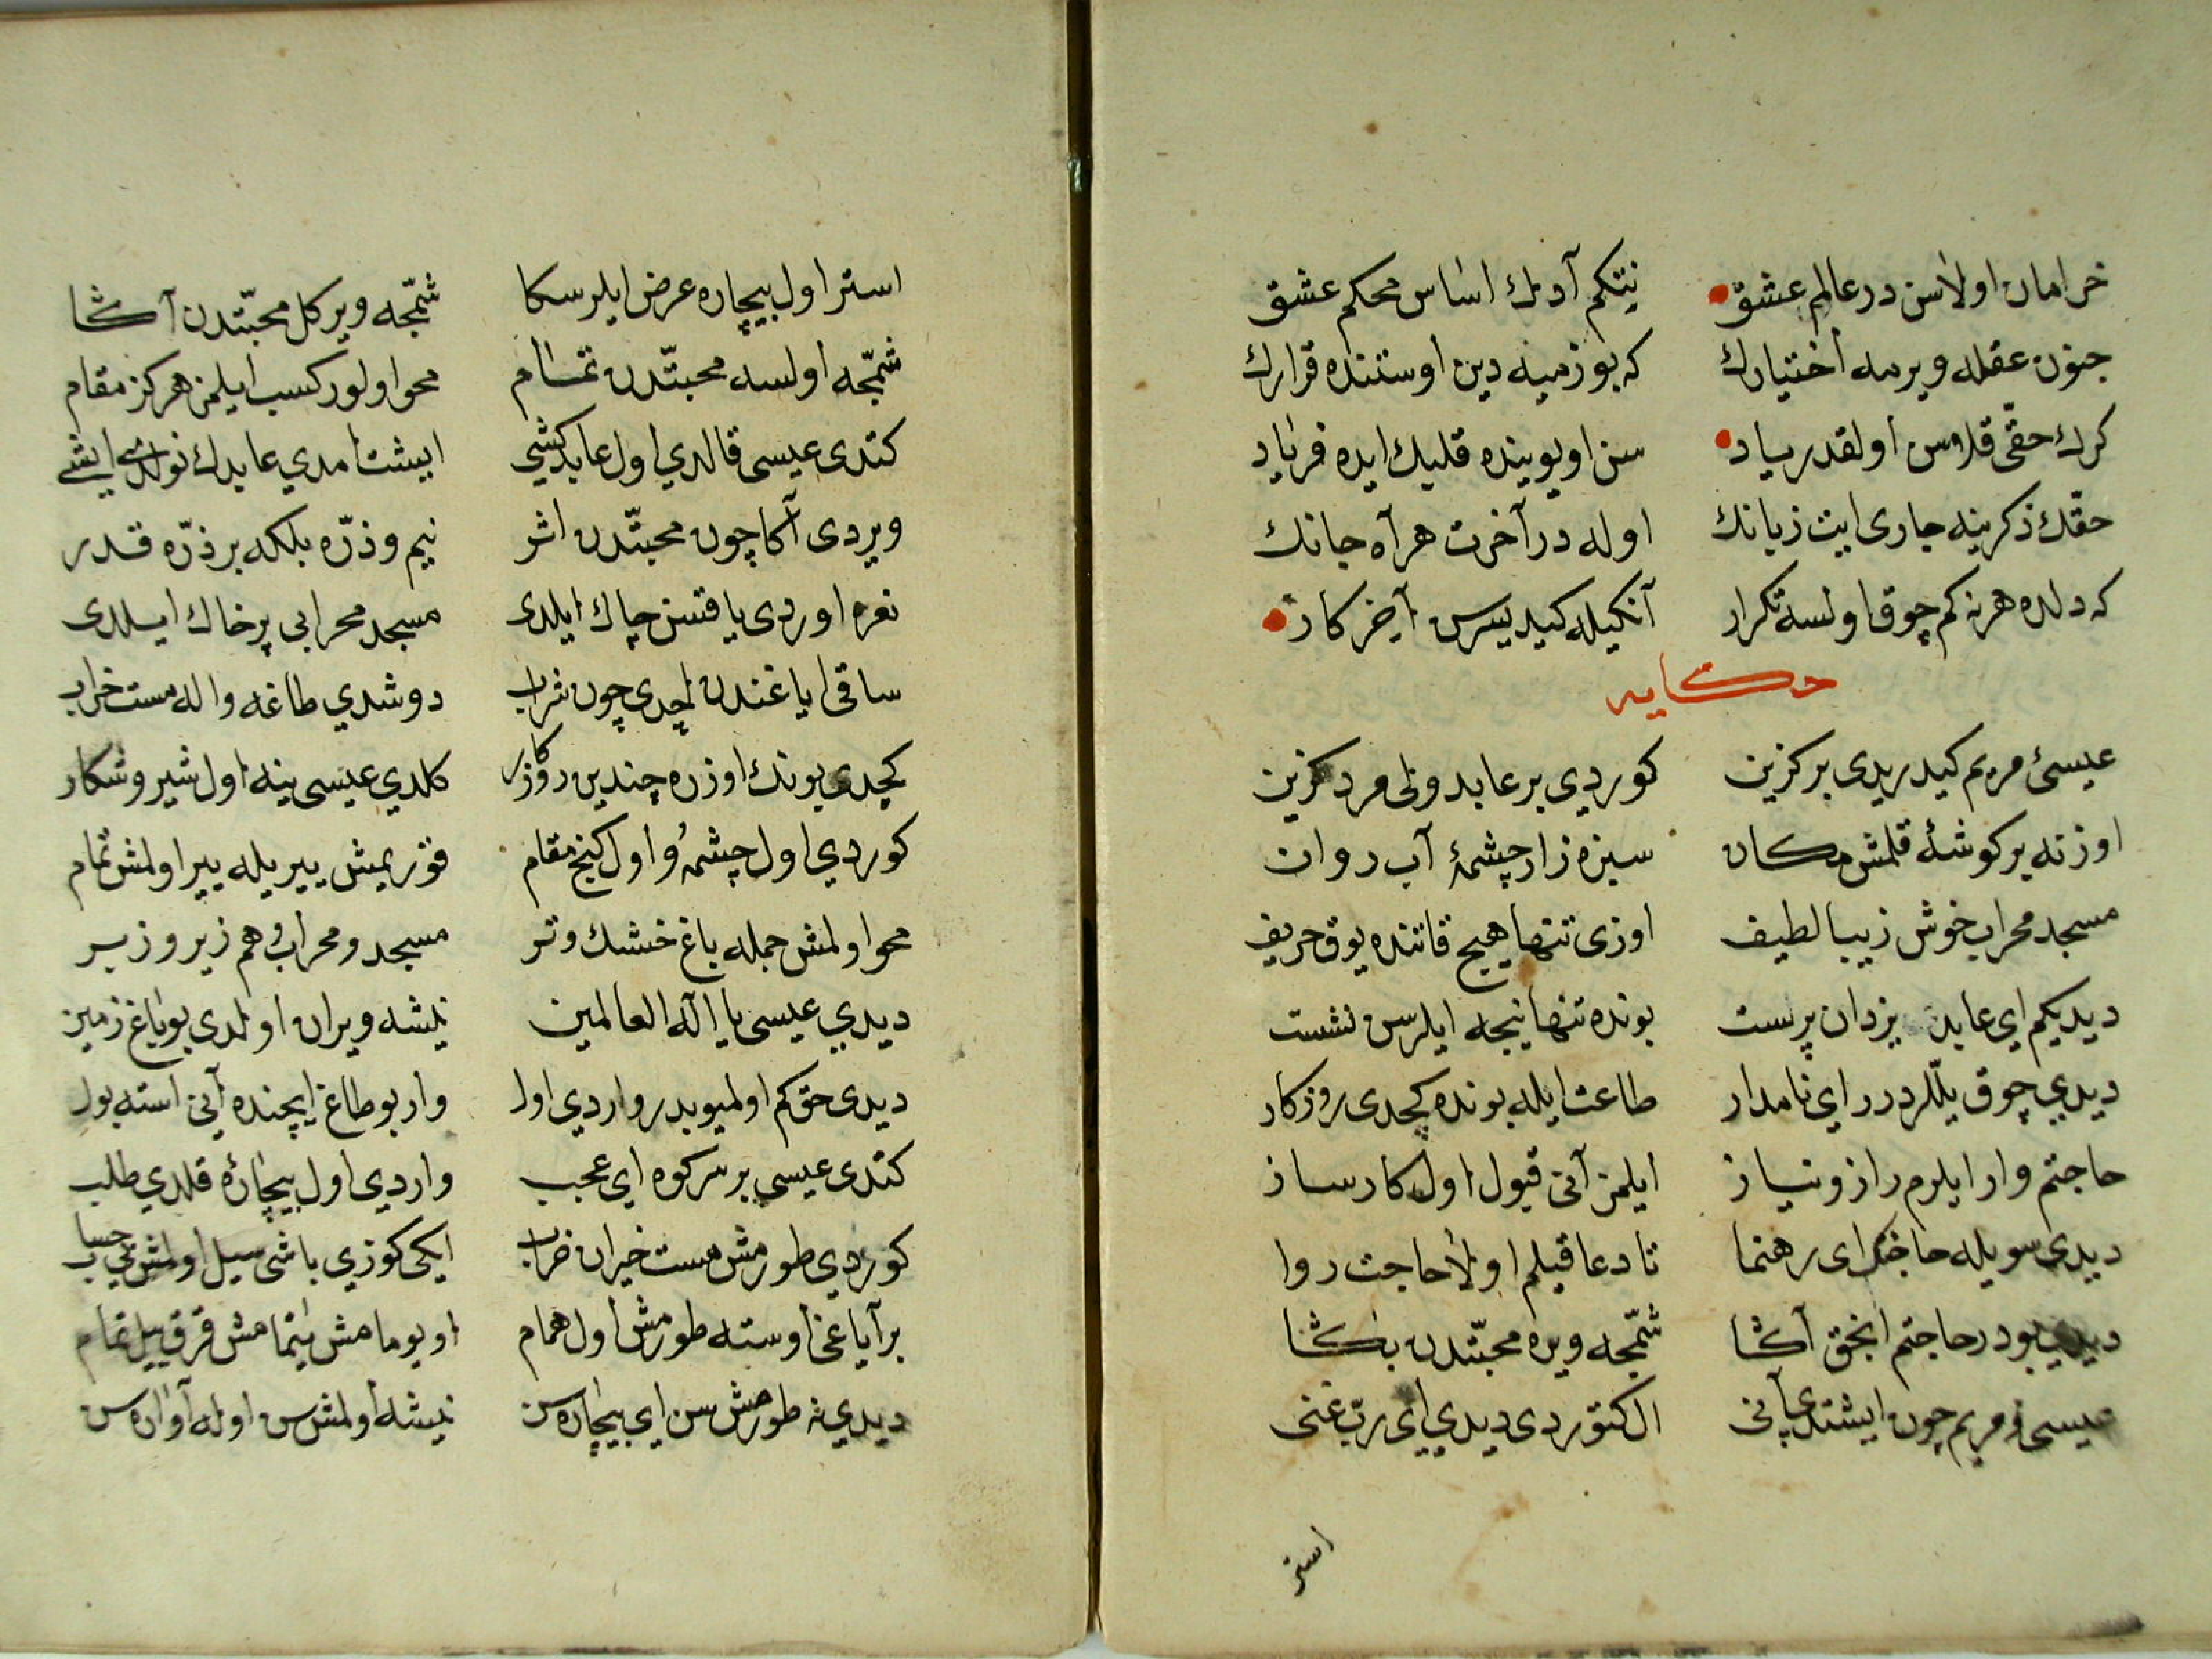 خرامان اولاسن در عالم عشق نیتکم آدنك اساس محکم عشق
جنون عقله ویرمه اختیارك که بو زمینه دین اوستنده قرارك
كرك حقی قلاسن اولقدر یاد سن اویوینده قلبك ایده فریاد
حقك ذکرینه جاری ایت زبانك اوله در آخرت همراه جانك
که دلده هر نه کم چوق اولسه تکرار آنکیله کیدیسرسن آخر کار
حکایه
عیسئ مریم کیدریدی بر کزین کوردی بر عابد ولی مرد کزین
اوزنه بر کوشهٔ قلمش مکان سبزه زار چشمهٔ آب روان
مسجد محراب خوش زیبا لطیف اوزی تنها هیچ قاتنده یوق حریف
دیدیکم ای عابد یزدان پرست بونده تنها نیجه ایلرسن نشست
دیدی چوق ییللردر ای نامدار طاعت ایله بونده کچدی روزکار
حاجتم وار ایلرم راز و نیاز ایلمز آنی قبول اول کارساز
دیدی سویله حاجتك ای رهنما تا دعا قیلم اولا حاجت روا
دیدی بودر حاجتم انجق آکا شمّجه ویره محبّتدن بکا
عیسی مریم چون ایشتدی آنی ال کتوردی دیدی ای ربّ غنی
استر
استر اول بیچاره عرض ایلر سکا شمّجه ویرکل محبّتدن آکا
شمّجه اولسه محبتّدن تمام محو اولور کسب ایلمز هرکز مقام
کتدی عیسی قالدی اول عابد کشی ایشت امدی عابدك نولدی ایشی
ویردی آکا چون محبتّدن اثر نیم و ذرّه بلکه بر ذرّه قدر
نعره اوردی یاقتسن چاك ایلدی مسجد محرابی پر خاك ایلدی
ساقی ایاغندن ایچدی چون شراب دوشدی طاغه واله مست خراب
کچدی بونك اوزره چندین روزکار کلدی عیسی ینه اول شیر و شکار
کوردی اول چشمهٔ و اول کنج مقام قوریمش ییریله ییر اولمش تمام
محو اولمش جمله باغ خشك و تر مسجد و محراب هم زیر و زبر
دیدی عیسی یا اله العالمین نیشه ویران اولدی بو باغ زمین
دیدی حق کم اولمیوبدر واردی اول وار بو طاغ ایچنده آنی استه بول
کتدی عیسی بر سر کوه ای عجب واردی اول بیچارهٔ قلدی طلب
کوردی طورمش مست حیران خراب ایکی کوزی یاشی سیل اولمش بی حساب
بر آیاغی اوسته طورمش اول همام اویومامش یتمامش قرق ییل تمام
دیدی نه طورمش سن ای بیچاره سن نیشه اولمش سن اوله آواره سن